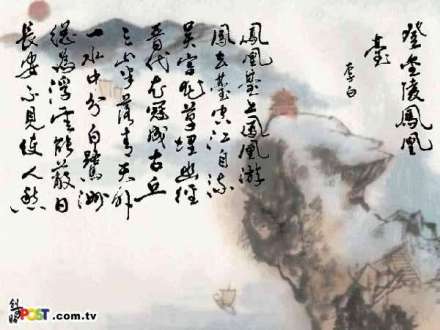 登金陵鳳凰
臺
李白
鳳凰臺上鳳凰游
鳳去臺空江自流
吳宮花草埋幽徑
晉代衣冠成古丘
三山半落青天外
一水中分白鷺洲
總為浮雲能蔽日
長安不見使人愁
POST.com.tv